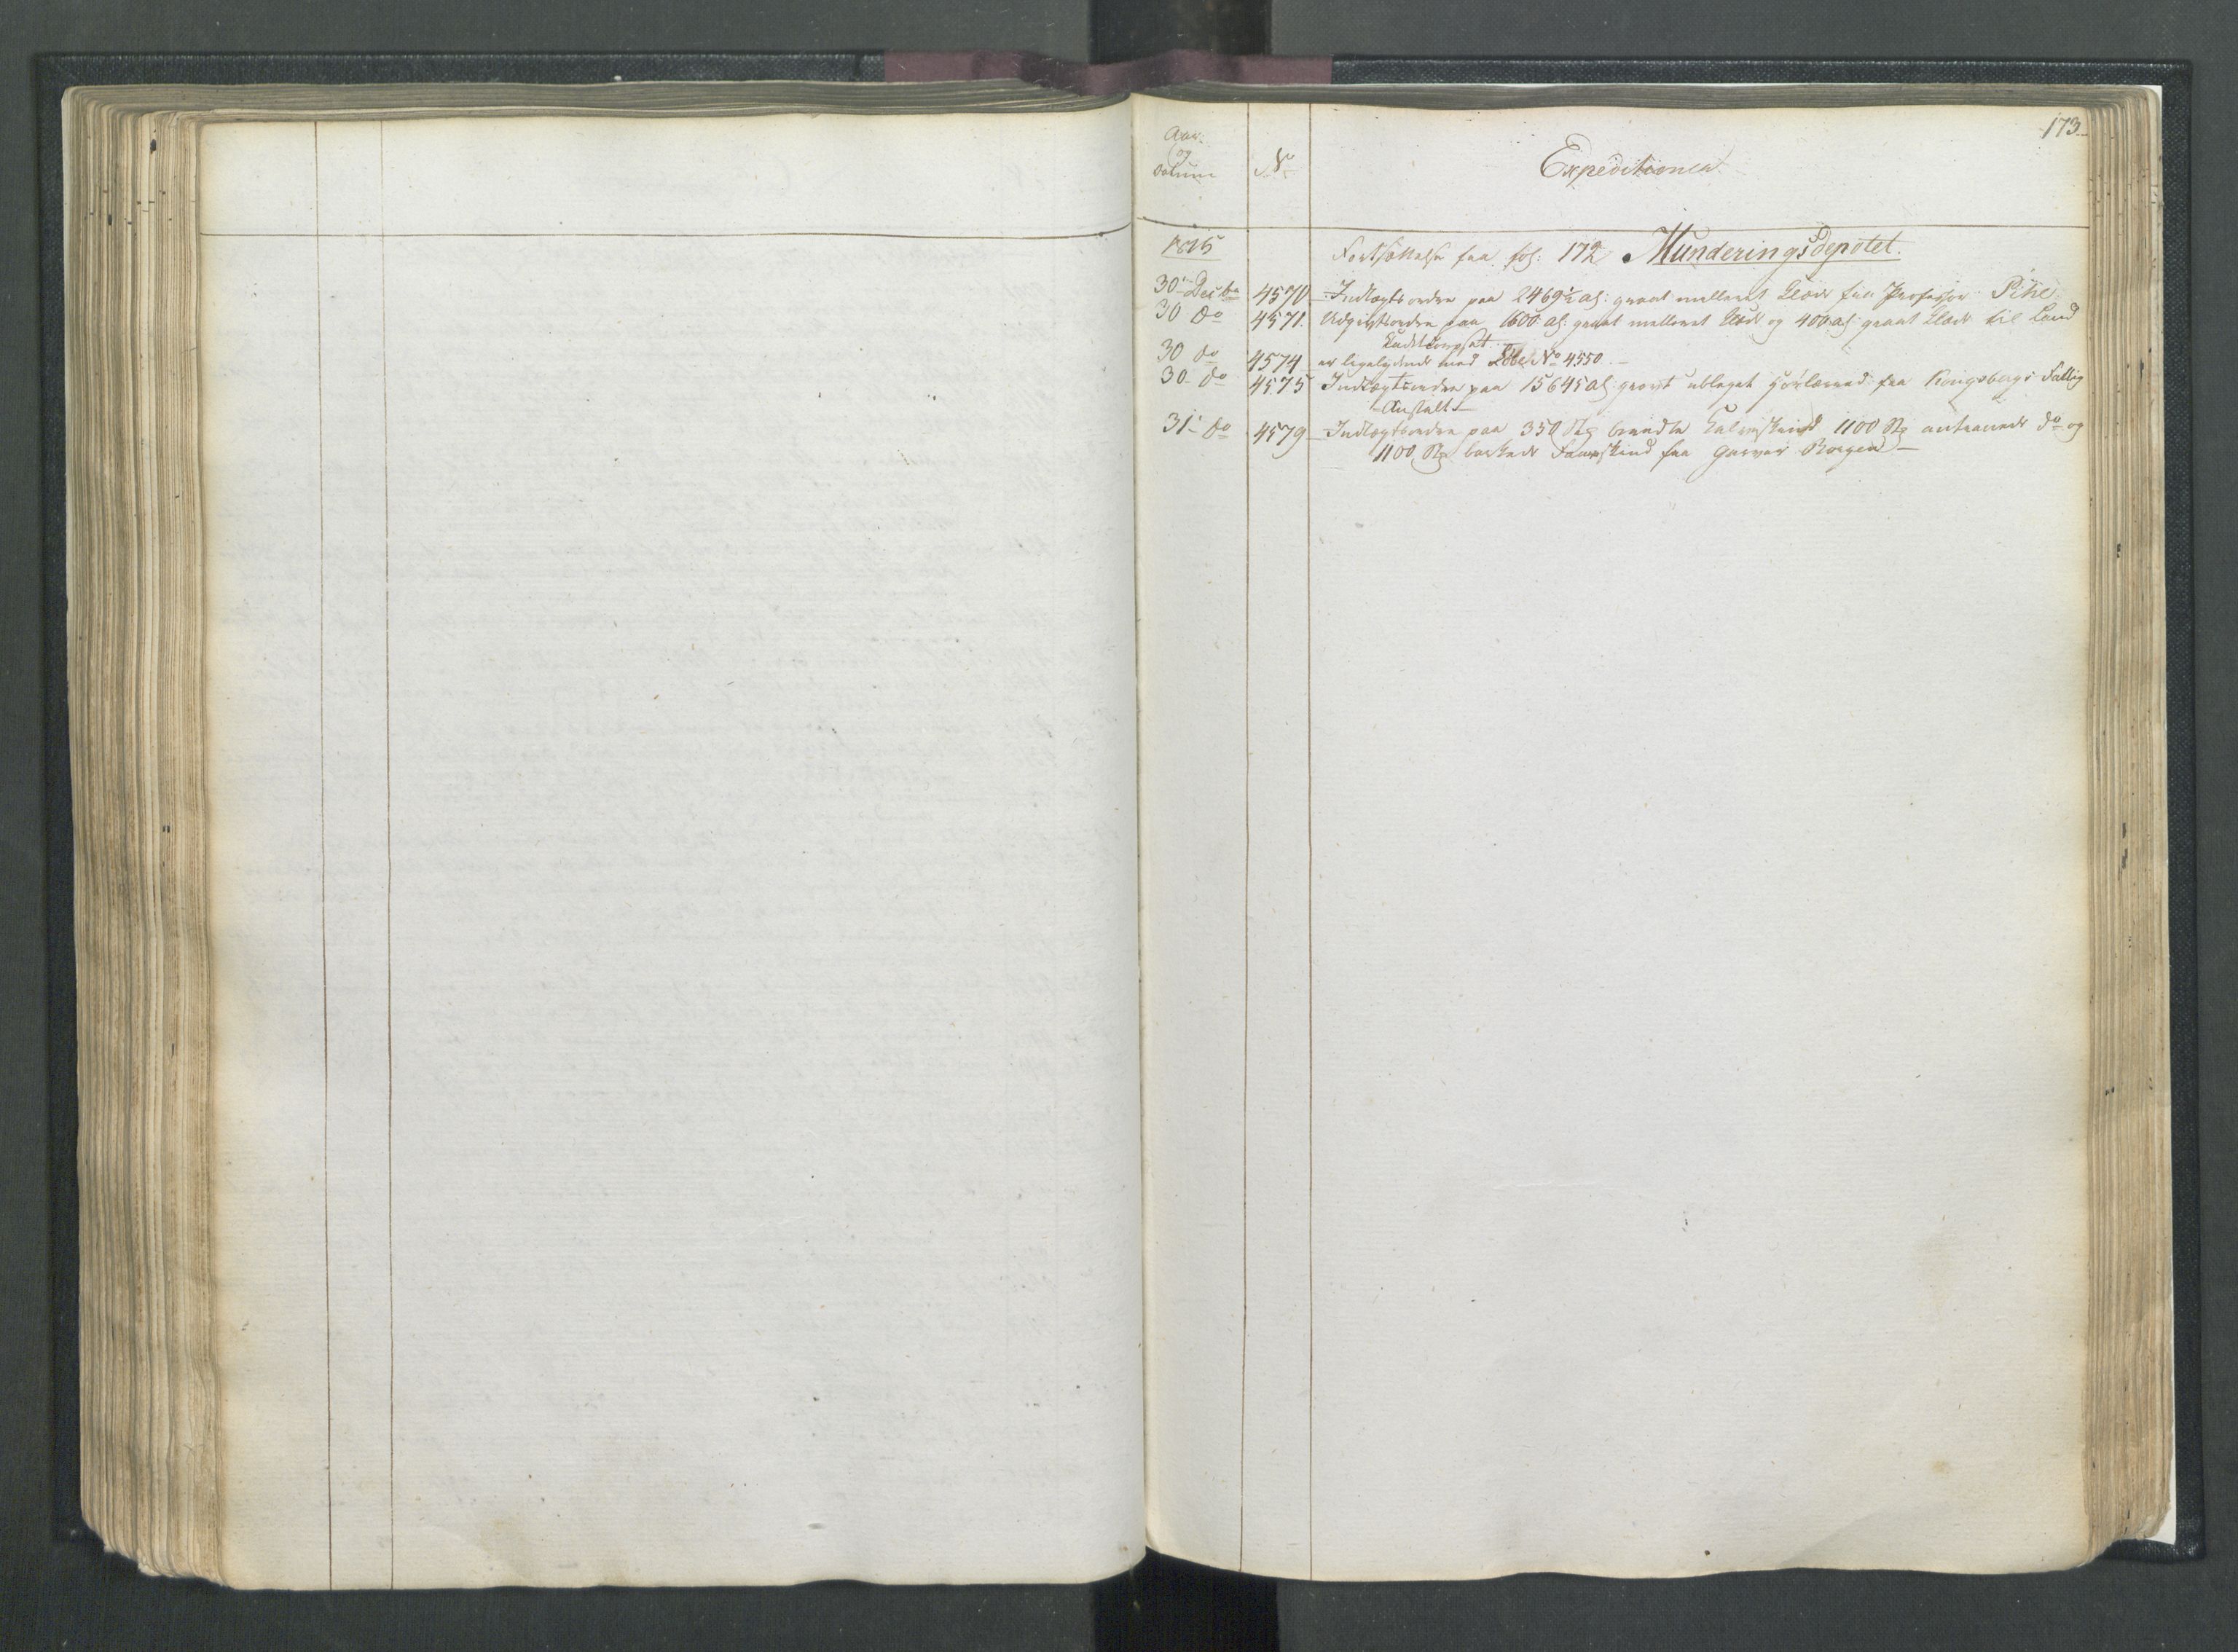 173.
Aar
og
Datum
No
Expeditioner
1815
Fortsættelse fra fol: 172 Munderingsdepotet.
30 Decbr 4570 Indtægtsordre paa 2469½ al: graat melleret Klæde fra Professor Pihl
30 do 4571. Udgiftsordre paa 1600 al: graat melleret Klæde og 400 al: graat Klæde til Land
Kadetkorpset
30 do 4574 er ligelydende med No 4550.
30 do 4575 Indtægtsordre paa 15645 al: grovt ubleget Hørlærred fra Kongsbergs Fattig
Anstalt
31 do 4579 Indtægtsordre paa 350 Kalveskind 1100 do og
1100 Faareskind fra Garver Borgen